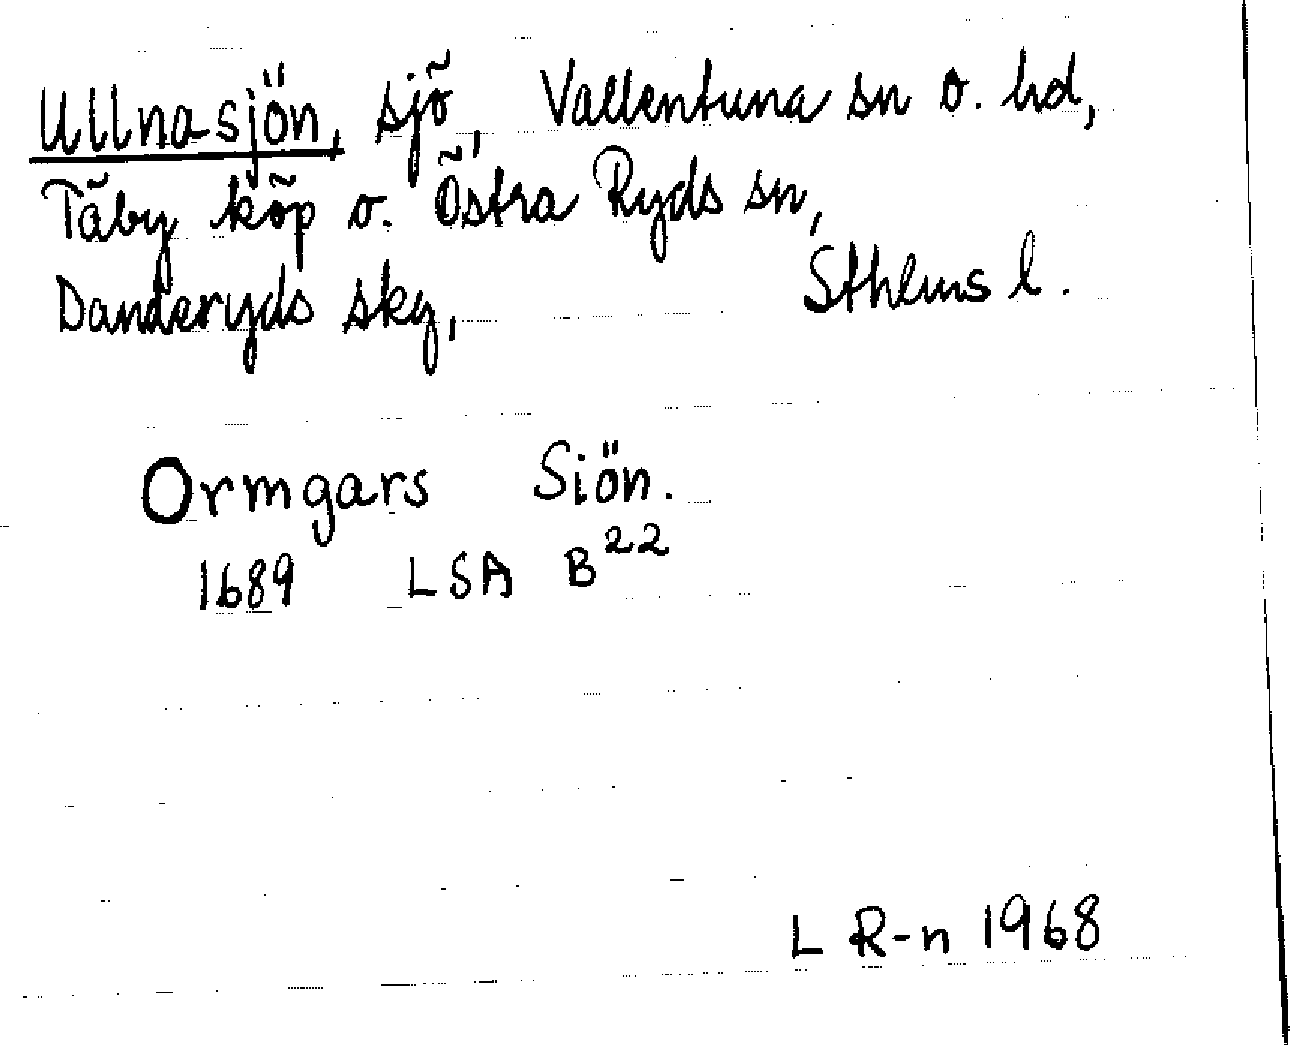 Ullnasjön, sjö, Vallentuna sn o. hd,
Täby köp o. Östra Ryds sn,
Danderyds skg, Sthlms l.
Ormgars Siön.
1689 LSA B²²
L R-n 1968